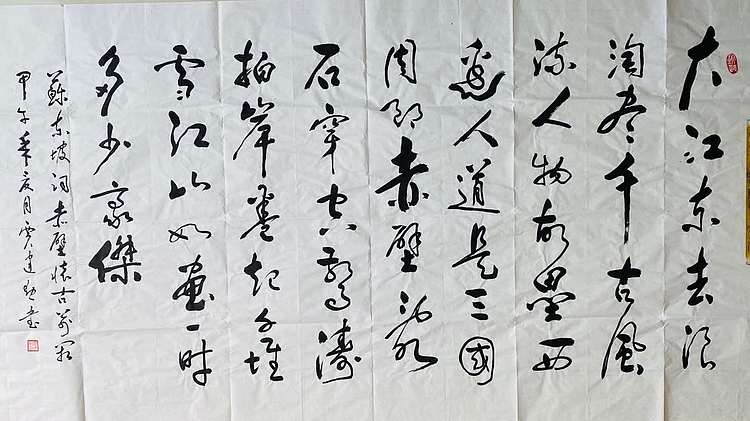 大江东去浪
淘尽千古风
流人物故壘西
邊人道是三國
周郎赤壁亂
石穿空惊濤
拍岸卷起千堆
雪江山如畫一时
多少豪傑
蘇东坡词赤壁懷古
甲午 月 书